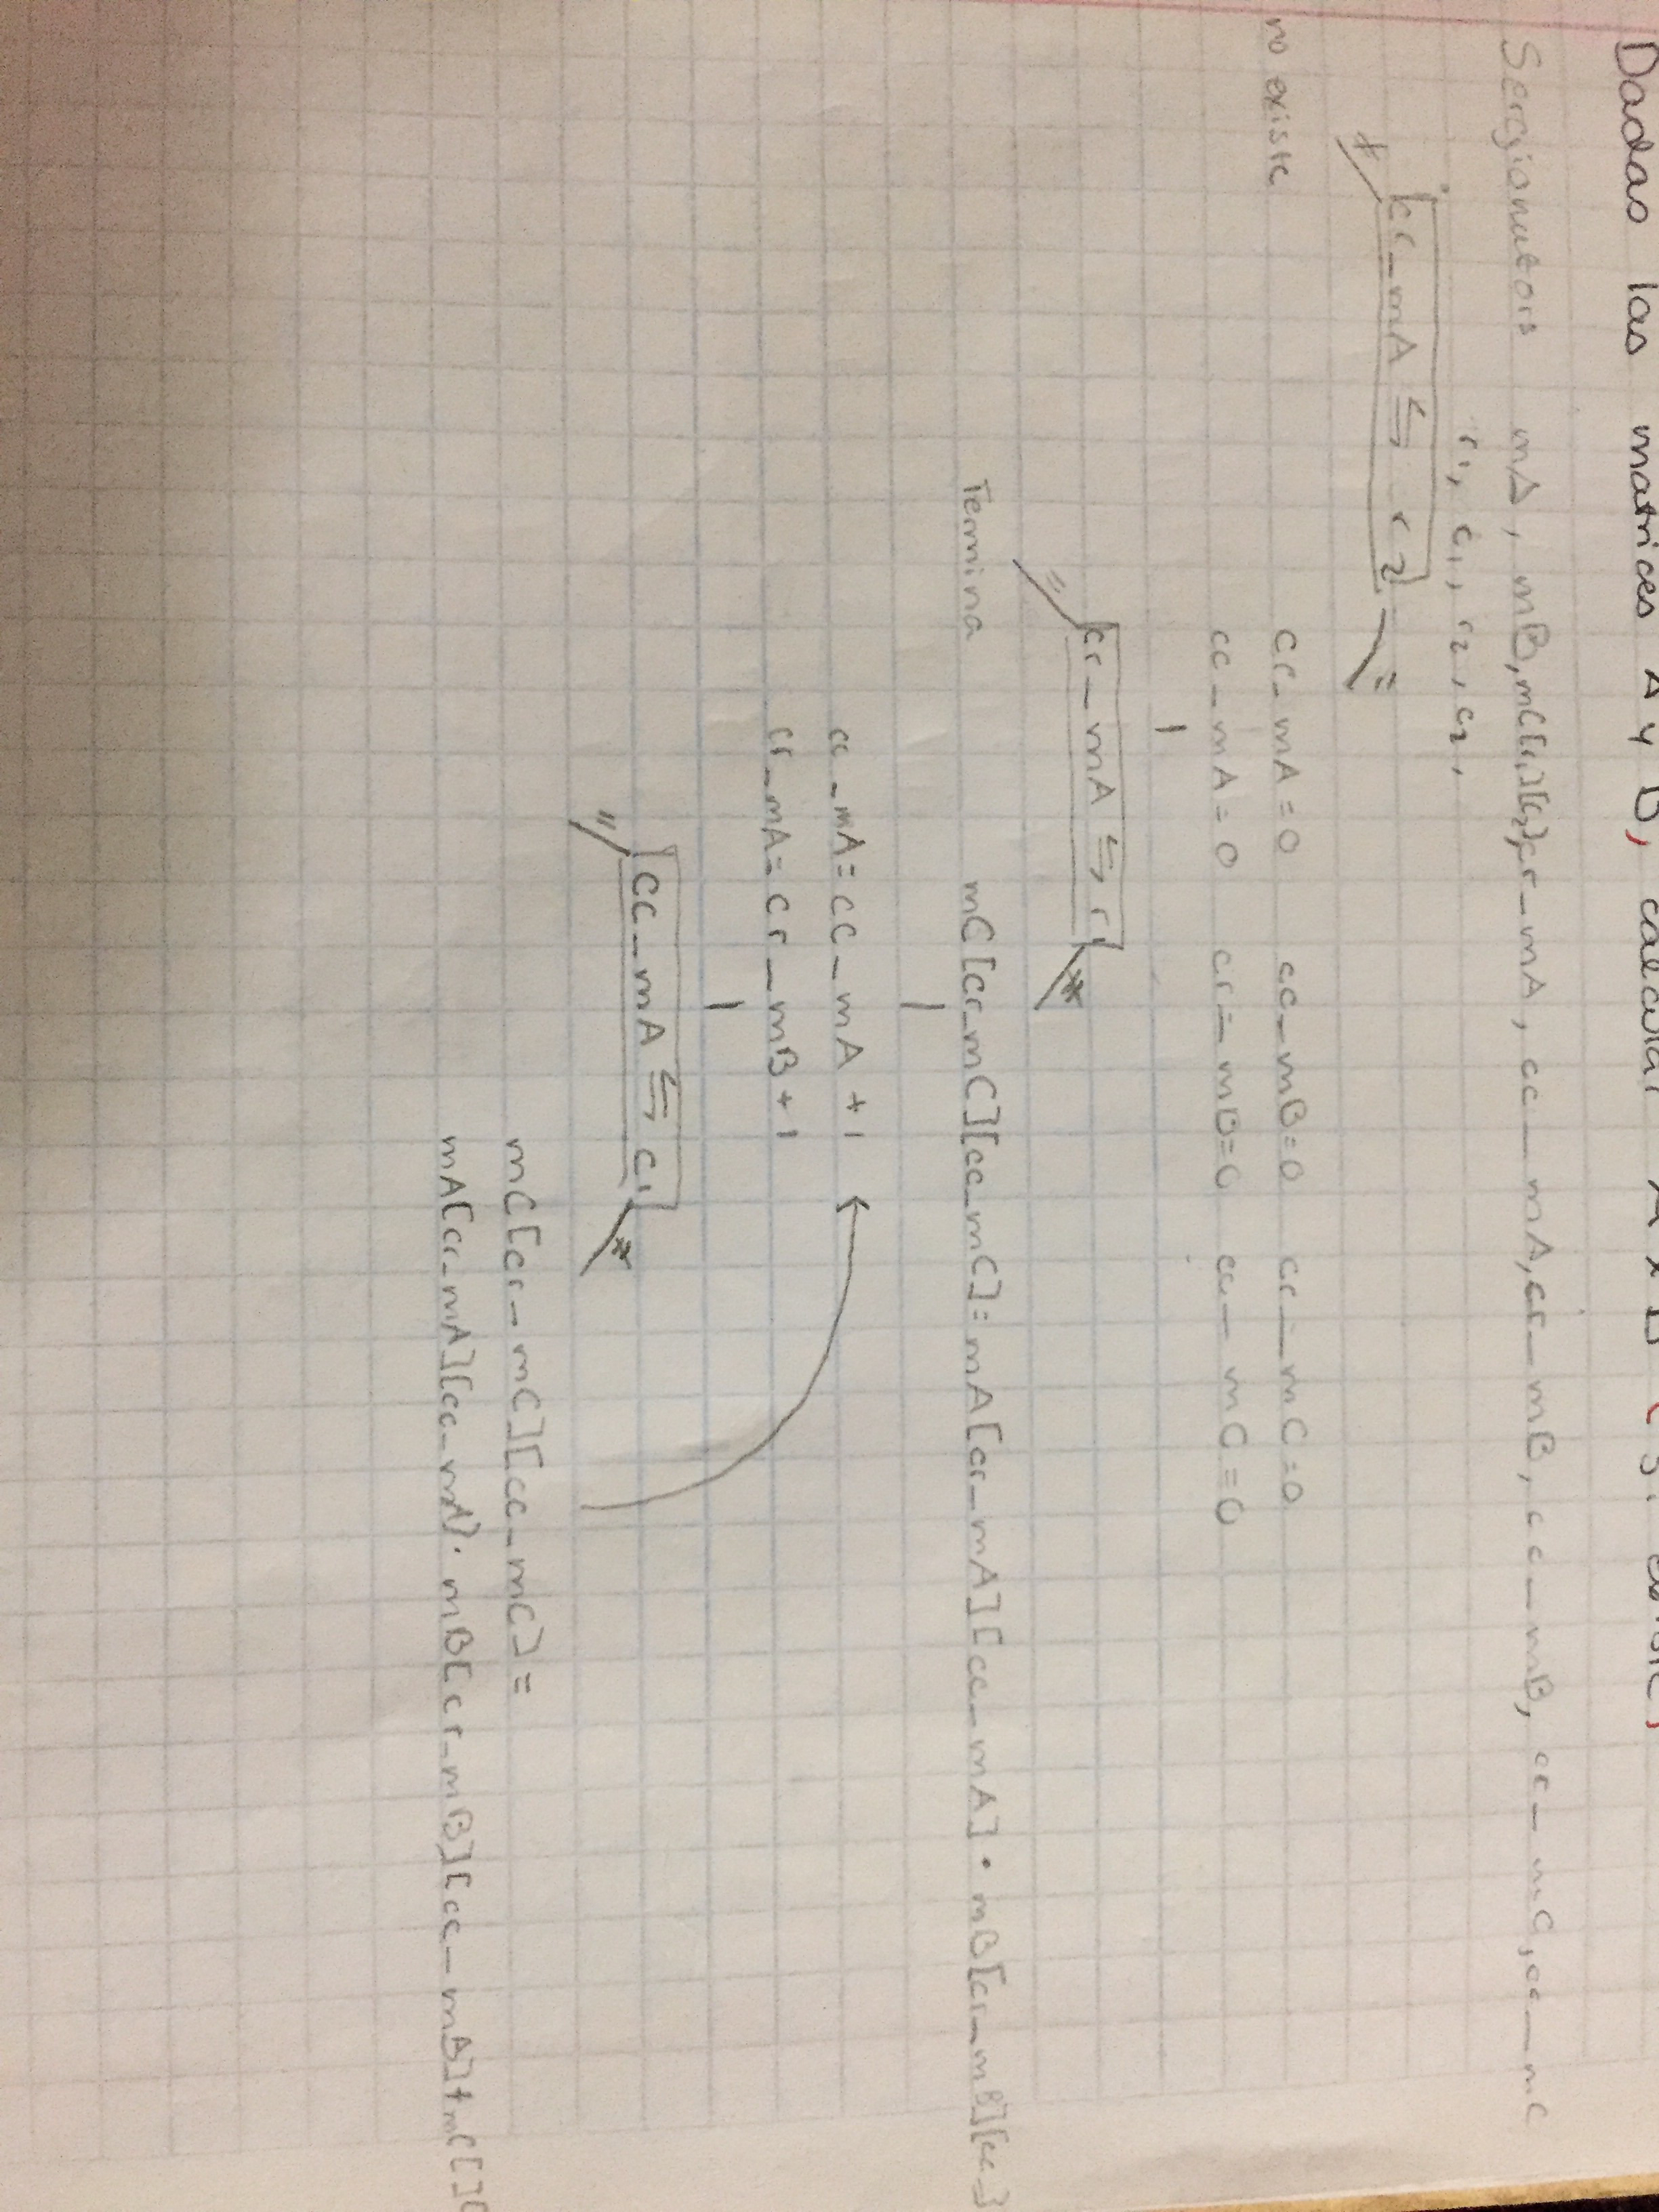 Dadas las matrices A y B, calcular A x B (si existe)
mA, mB, mC[r1][c2], cr_mA, cc_mA, cr_mB, cc_mB, cr_mC, cc_mC
r1, c1, r2, c2,
cr_mA ⇆ r2
≠ =
no existe cr_mA=0 cc_mB=0 cr_mC=0
cc_mA=0 cr_mB=0 cc_mC=0
cr_mA ⇆ r1
= ≠
Termina mC[cr_mC][cc_mC]=mA[cr_mA][cc_mA]·mB[cr_mB][cc_]
cc_mA=cc_mA+1
cr_mA=cr_mB+1
cc_mA ⇆ c1
= ≠
mC[cr_mC][cc_mC]=
mA[cr_mA][cc_mA]·mB[cr_mB][cc_mB]+mC[][